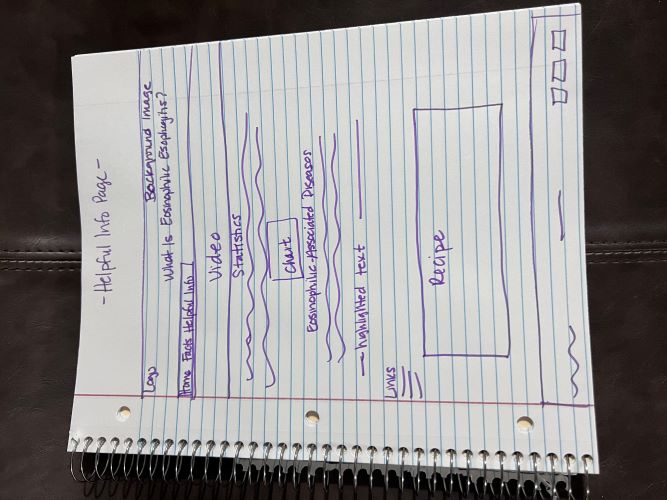 - Helpful Info Page -
Logo Background Image
What Is Eosinophilic Esophagitis?
Home Facts Helpful Info
Video
Statistics
Chart
Eosinophilic-Associated Diseases
highlighted text
Links
Recipe